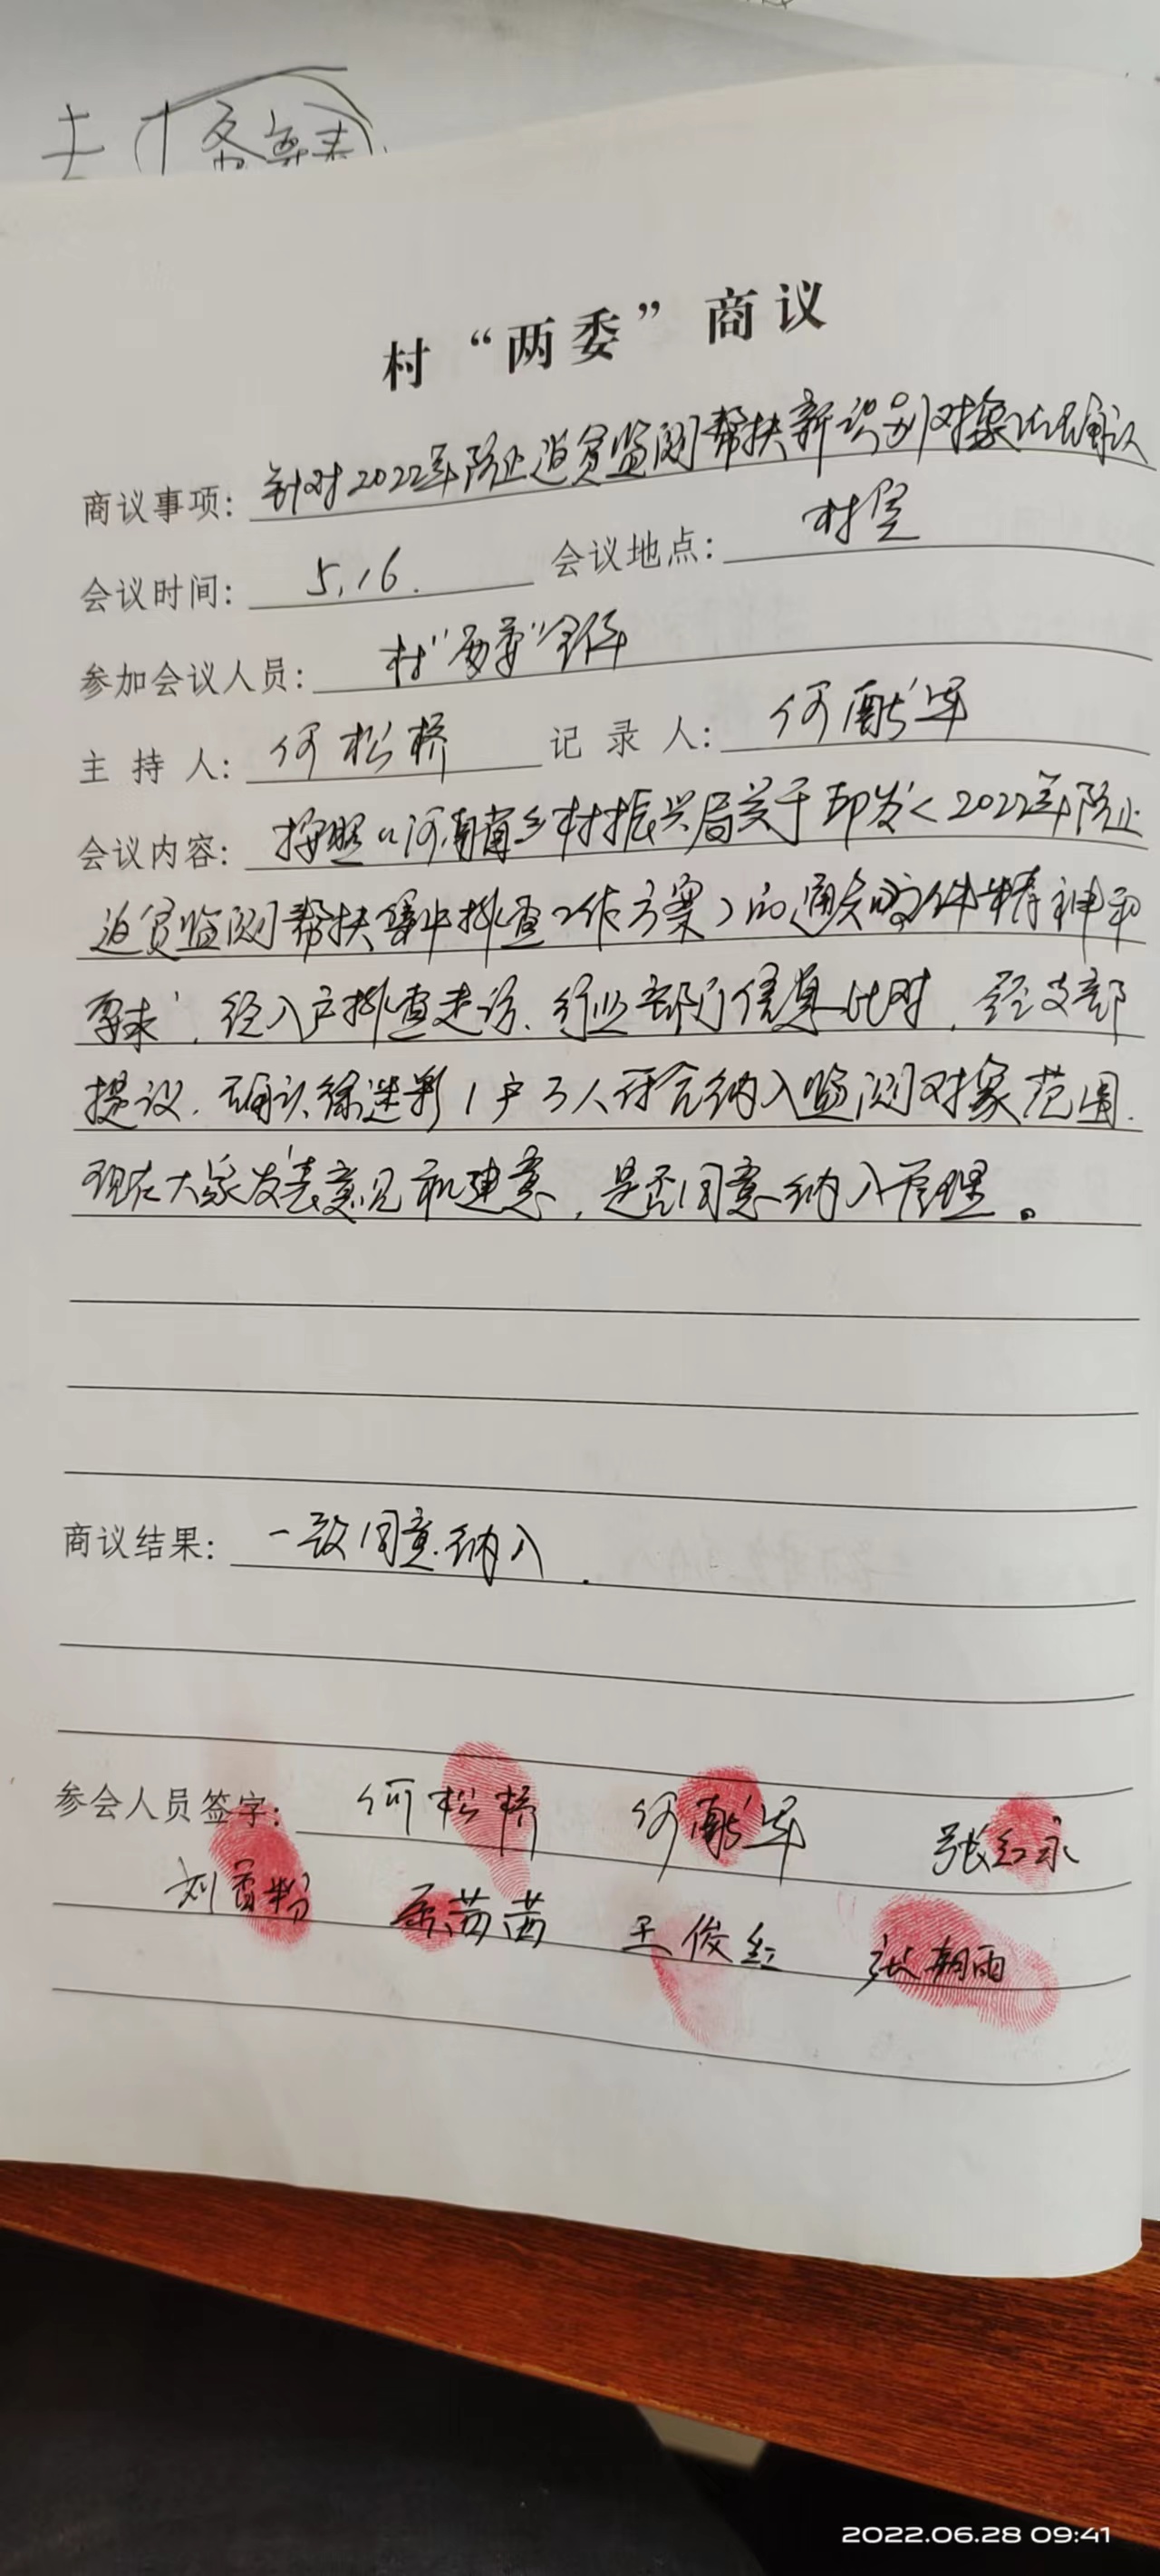 村“两委”商议
商议事项: 针对2022年防止返贫监测帮扶新识别对象进行确认
会议时间: 5.16. 会议地点: 村室
参加会议人员: 村“两委”全体
主持人: 何松桥 记录人: 何献军
会议内容: 按照《河南省乡村振兴局关于印发<2022年防止
返贫监测帮扶集中排查工作方案>的通知》文件精神和
要求, 经入户排查走访、行业部门信息比对, 经支部
提议, 确认徐迷彩1户3人符合纳入监测对象范围.
现在大家发表意见和建意, 是否同意纳入管理。
商议结果: 一致同意纳入.
参会人员签字: 何松桥 何献军 张红永
刘 粉 茜 王俊红 张朝雨
2022.06.28 09:41